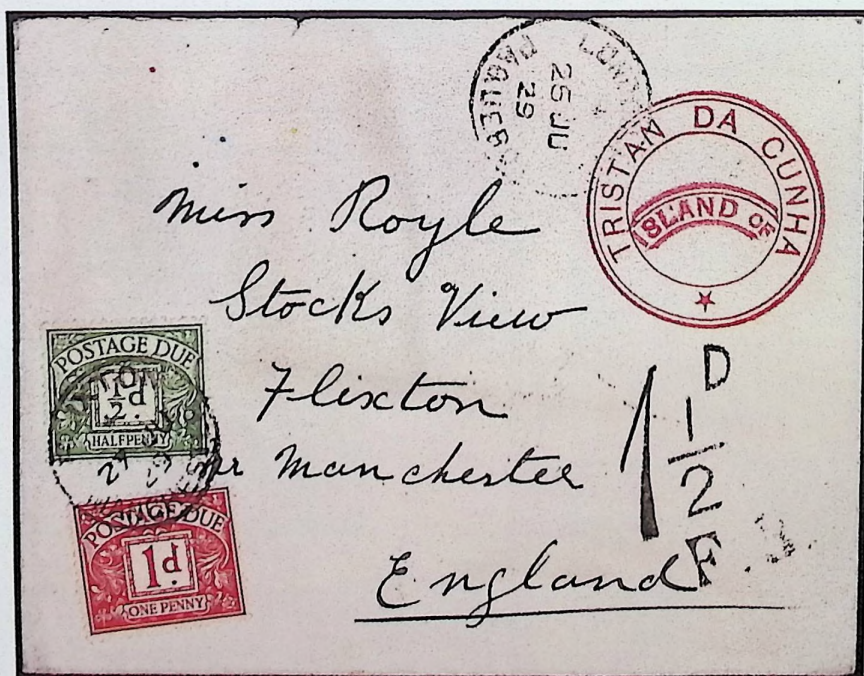 PAQUEB
25 JU
29
TRISTAN DA CUNHA
ISLAND OF
Miss Royle
Stocks View
Flixton
nr Manchester
England
POSTAGE DUE
½d
HALFPENNY
POSTAGE DUE
1d.
ONE PENNY
1½D
F.